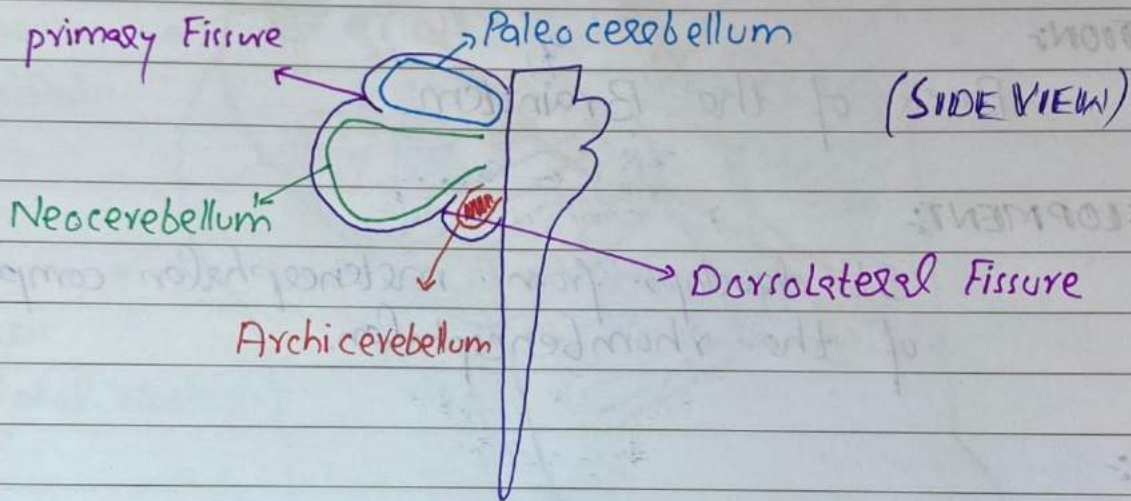 primary Fissure
Paleocerebellum
(SIDE VIEW)
Neocerebellum
Dorsolateral Fissure
Archicerebellum